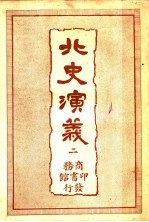 北史演義
二
商務印書館發行